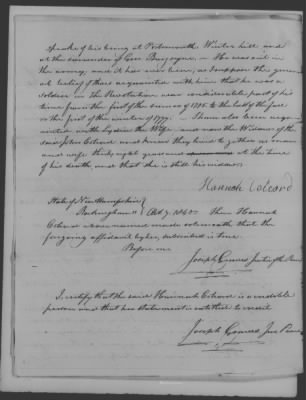 speake of his being at Portsmouth Winter hill and
at the surrender of Gen Burgoyne — He was out in
the army and it has ever been, as I suppose the gener-
al belief of those acquainted with him that he was a
soldier in the Revolution was considerable part of his
time from the first of the summer of 1775 to the last of the fall
or the first of the winter of 1777 — I have also been acqu-
ainted with Lydia the Wife and now the Widow of the
said John Colcord and know they lived together as man
and wife till his death at the time
of his death and that she is still his widow
Hannah Colcord
State of New Hampshire
Rockingham ss Oct 7 1840 Then Hannah
Colcord above named made oath that the
foregoing affidavit by her subscribed is true
Before me
Joseph Graves Justice of the Peace
I certify that the said Hannah Colcord is a credible
person and that her statement is entitled to credit
Joseph Graves Jus Peace